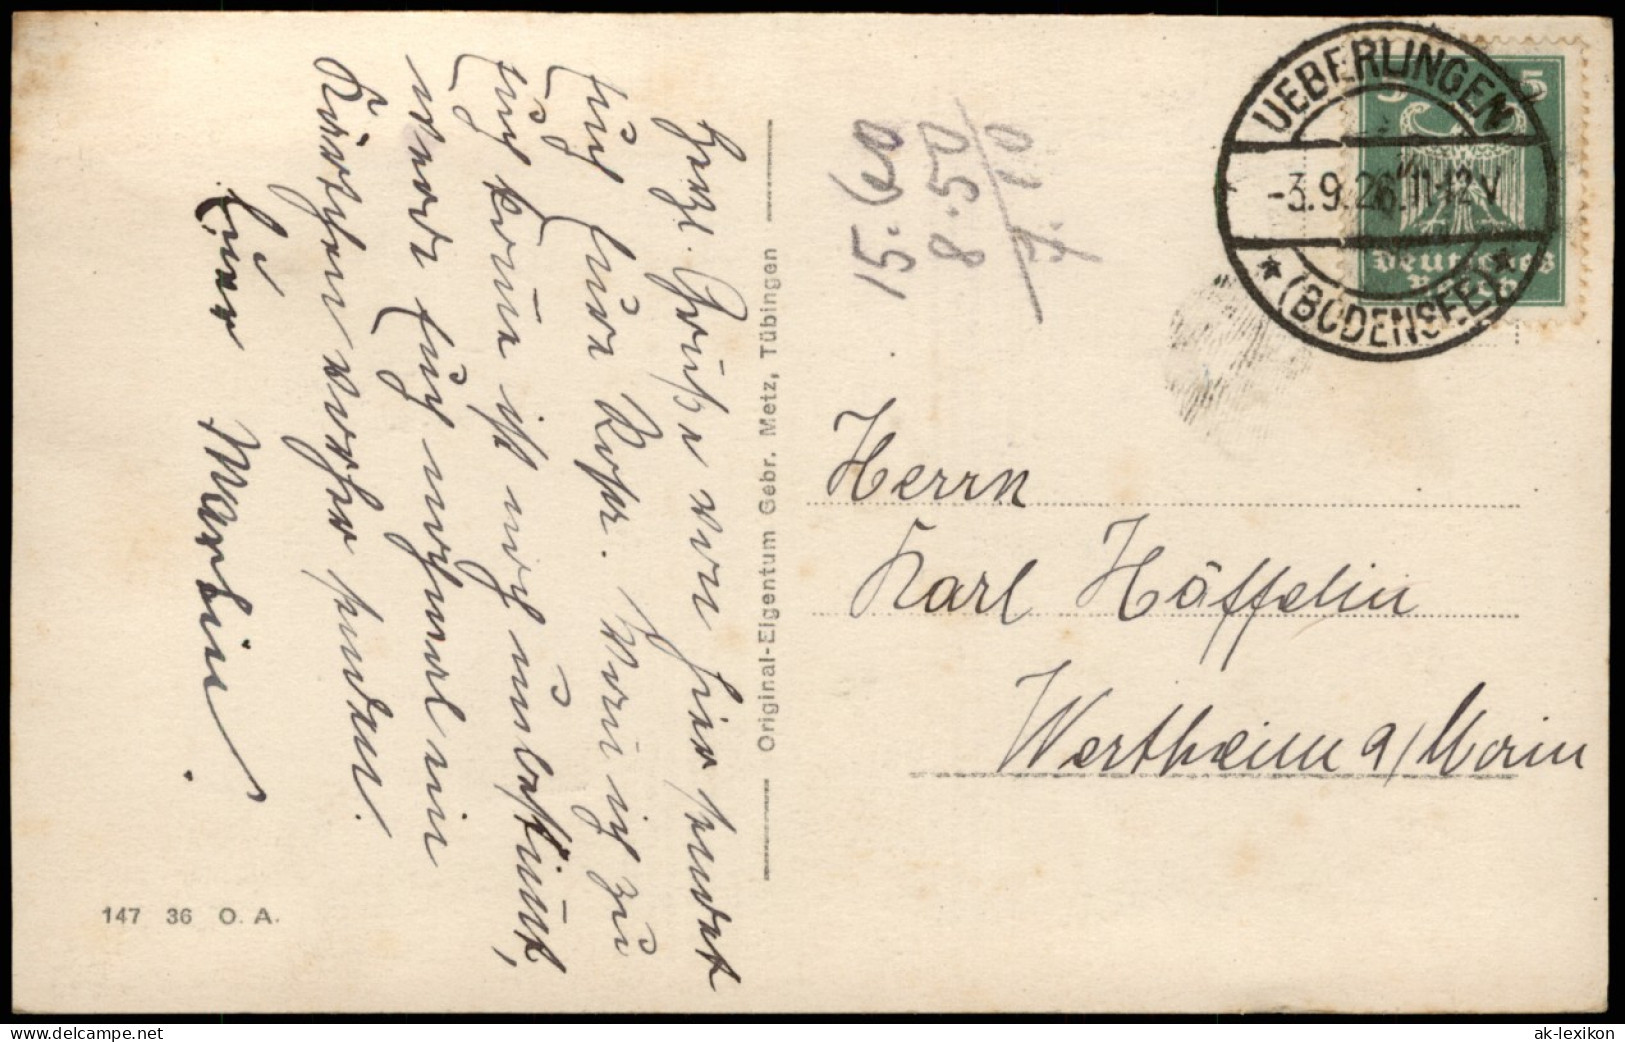 Herzl. Grüße von hier sendet
Euch Eure Rosa. Wann ich zu
Euch komme ist noch unbestimmt,
werde Euch nochmal ein
Kärtchen vorher senden.
Euer Martin.
147 36 O. A.
Original-Eigentum Gebr. Metz, Tübingen
15.60
8.50
7.10
UEBERLINGEN
-3.9.26.11-12V
* (BODENSEE) *
5 5
Deutsches
Reich
Herrn
Karl Höffelin
Wertheim a/Main
ak-lexikon
www.delcampe.net